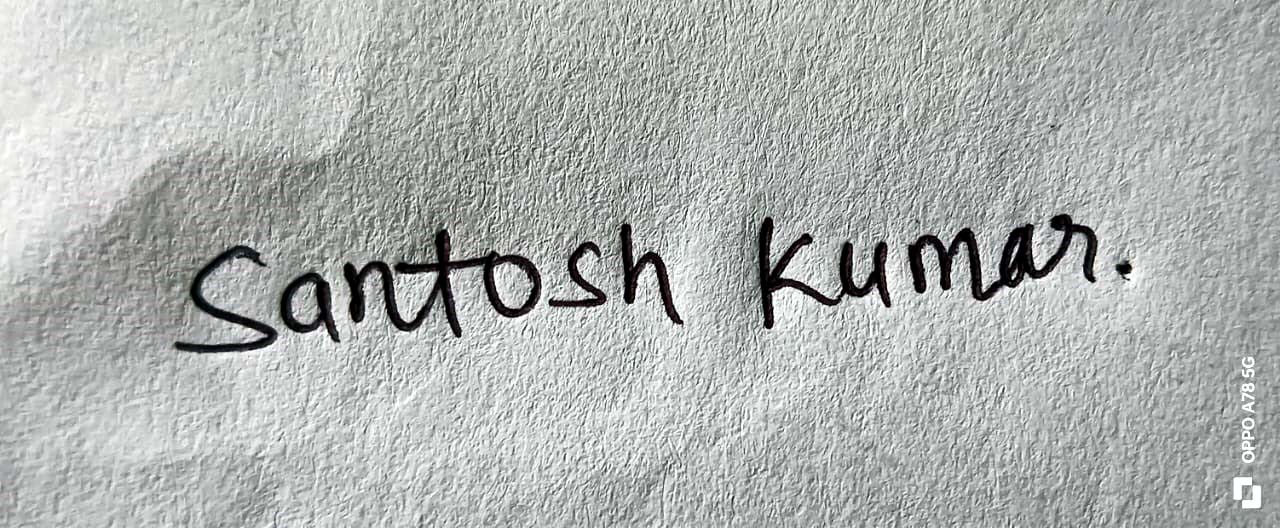 Santosh Kumar.
OPPO A78 5G